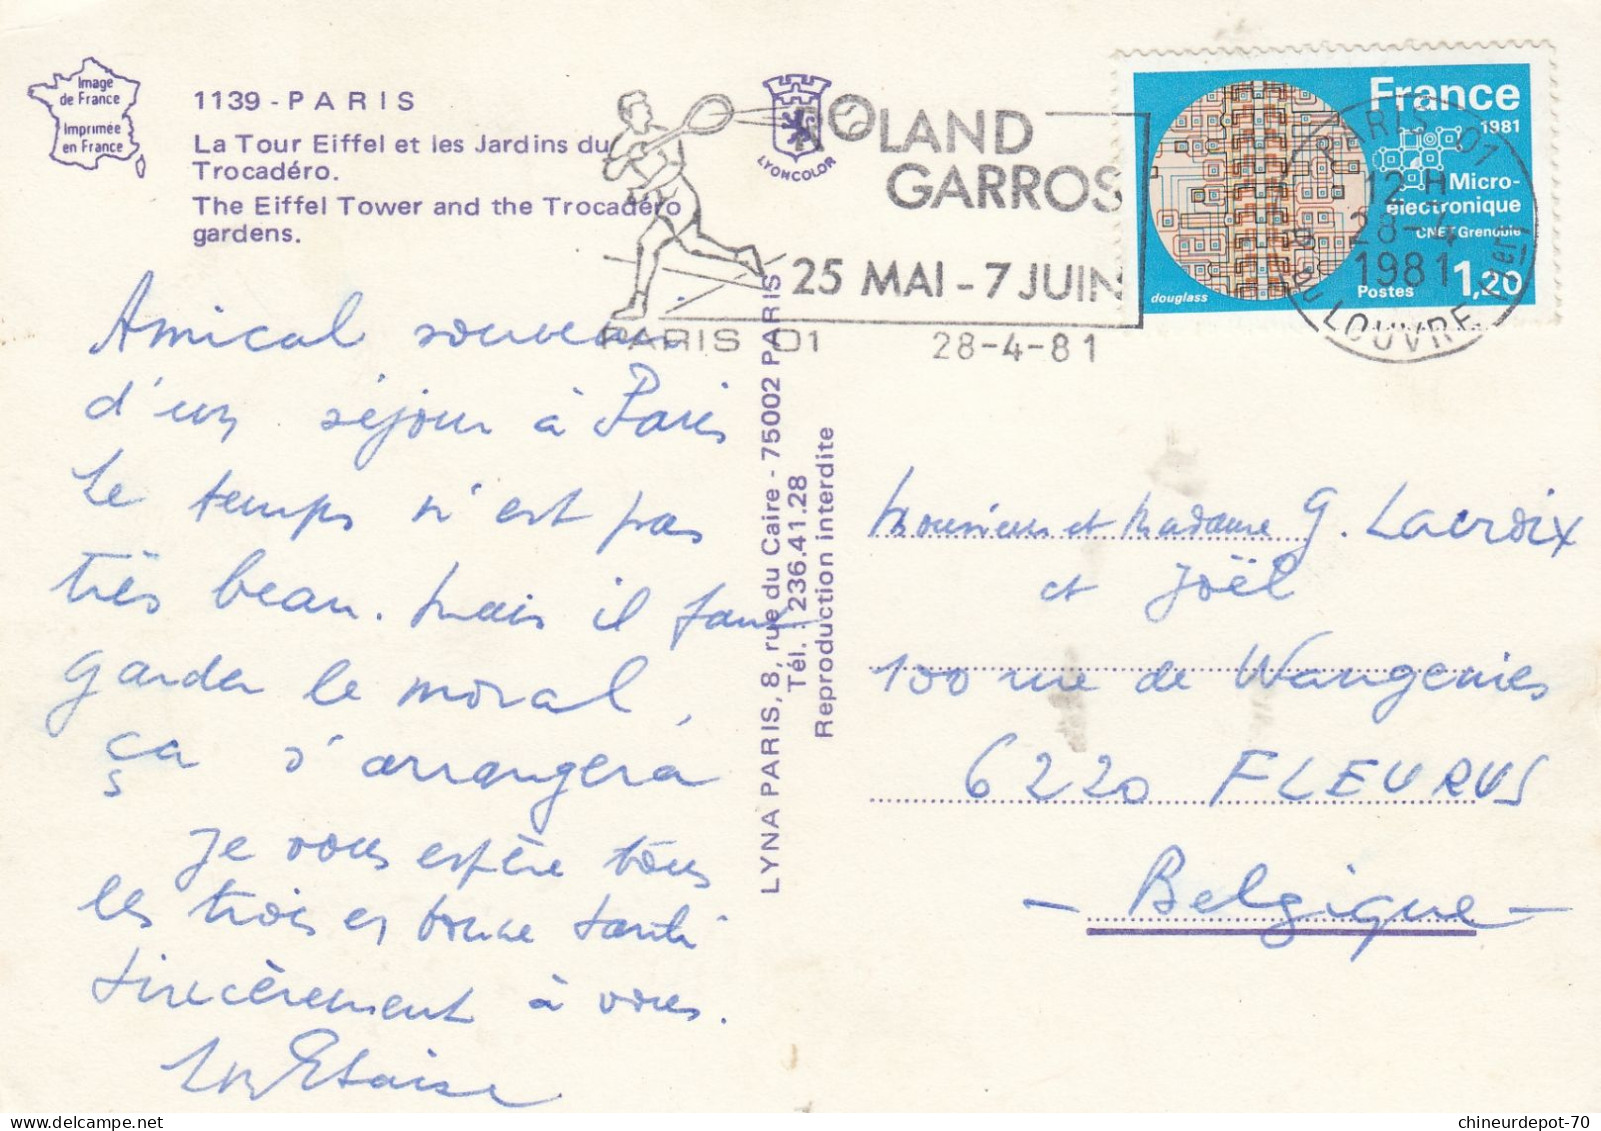 Image
de France
Imprimée
en France
1139 - PARIS
La Tour Eiffel et les Jardins du
Trocadéro.
The Eiffel Tower and the Trocadéro
gardens.
LYONCOLOR
ROLAND
GARROS
25 MAI - 7 JUIN
PARIS 01
28-4-81
France
1981
Micro-
électronique
CNET Grenoble
Postes 1,20
douglass
PARIS 01
12 H
28-4
1981
R. DU LOUVRE (1er)
Amical souvenir
d'un séjour à Paris
Le temps n'est pas
très beau. Mais il faut
garder le moral,
ça s'arrangera
Je vous espère tous
les trois en bonne santé
sincèrement à vous.
LYNA PARIS, 8, rue du Caire - 75002 PARIS
Tél. : 236.41.28
Reproduction interdite
Monsieur et Madame G. Lacroix
et Joël
100 rue de Wangenies
6220 FLEURUS
- Belgique -
chineurdepot-70